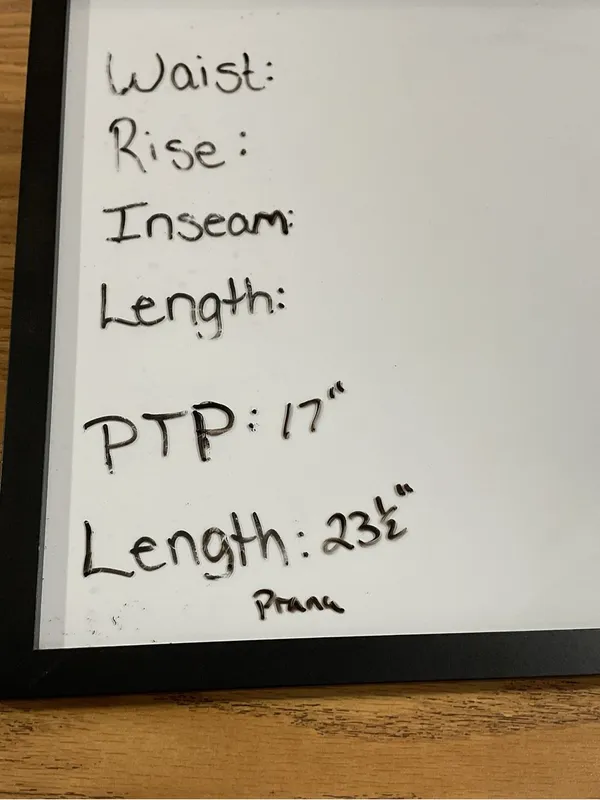 Waist:
Rise:
Inseam:
Length:
PTP: 17"
Length: 23½"
Prana